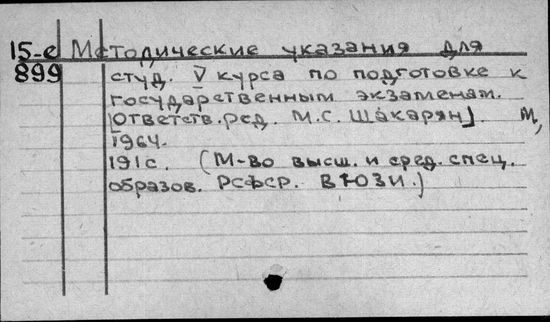 15-е Методические указания для
899 студ. V курса по подготовке к
государственным экзаменам.
[Ответств. ред. М.С. Шакарян]. М,
1964.
191с. (М-во высш. и сред. спец.
образов. РСФСР. ВЮЗИ.)